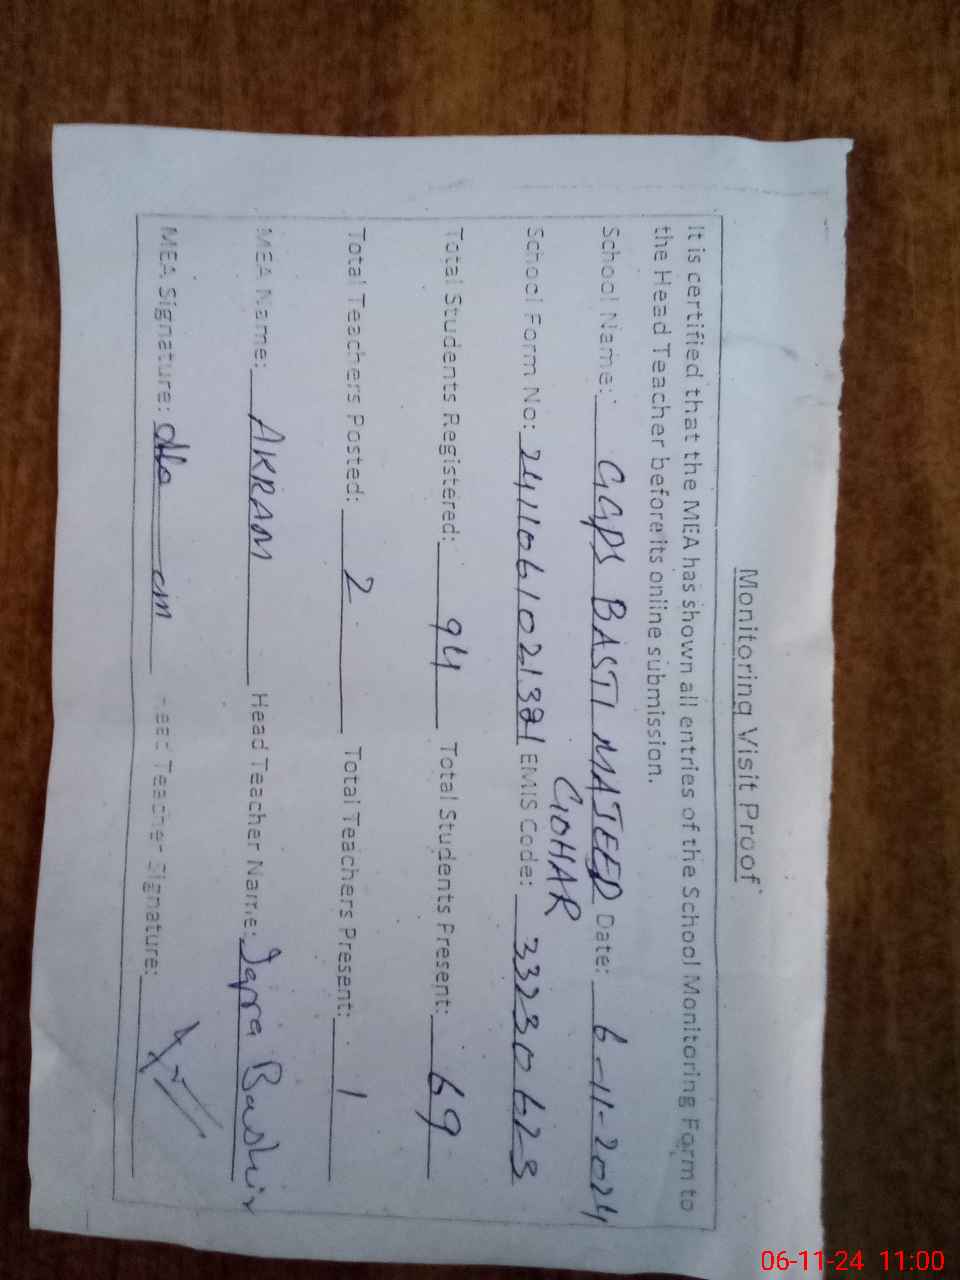 Monitoring Visit Proof
It is certified that the MEA has shown all entries of the School Monitoring Form to
the Head Teacher before its online submission.
School Name: GGPS BASTI MAJEED Date: 6-11-2024
GOHAR
School Form No: EMIS Code:
Total Students Registered: 94 Total Students Present: 69
Total Teachers Posted: 2 Total Teachers Present: 1
MEA Name: AKRAM Head Teacher Name: Iqra Bashir
MEA Signature: Head Teacher Signature:
06-11-24 11:00